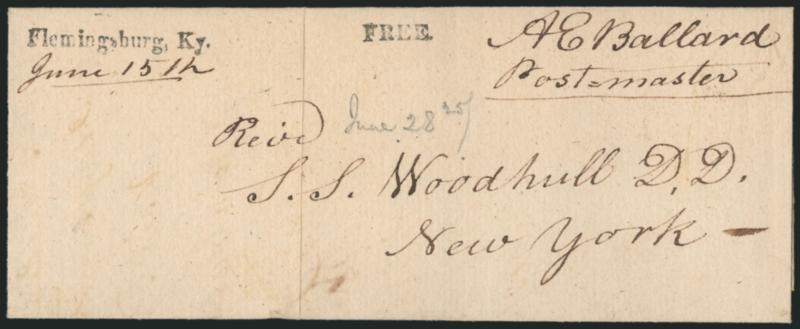 Flemingsburg, Ky.
June 15th
FREE.
A E Ballard
Post=master
Revd
June 28
S. S. Woodhull D. D.
New York —